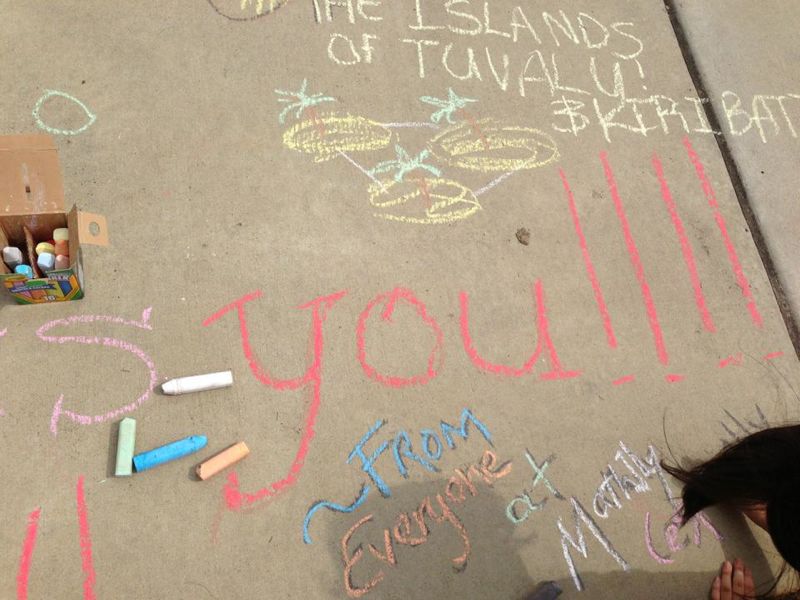 THE ISLANDS
OF TUVALU!
& KIRIBATI
S you!!!!
~ FROM
Everyone at